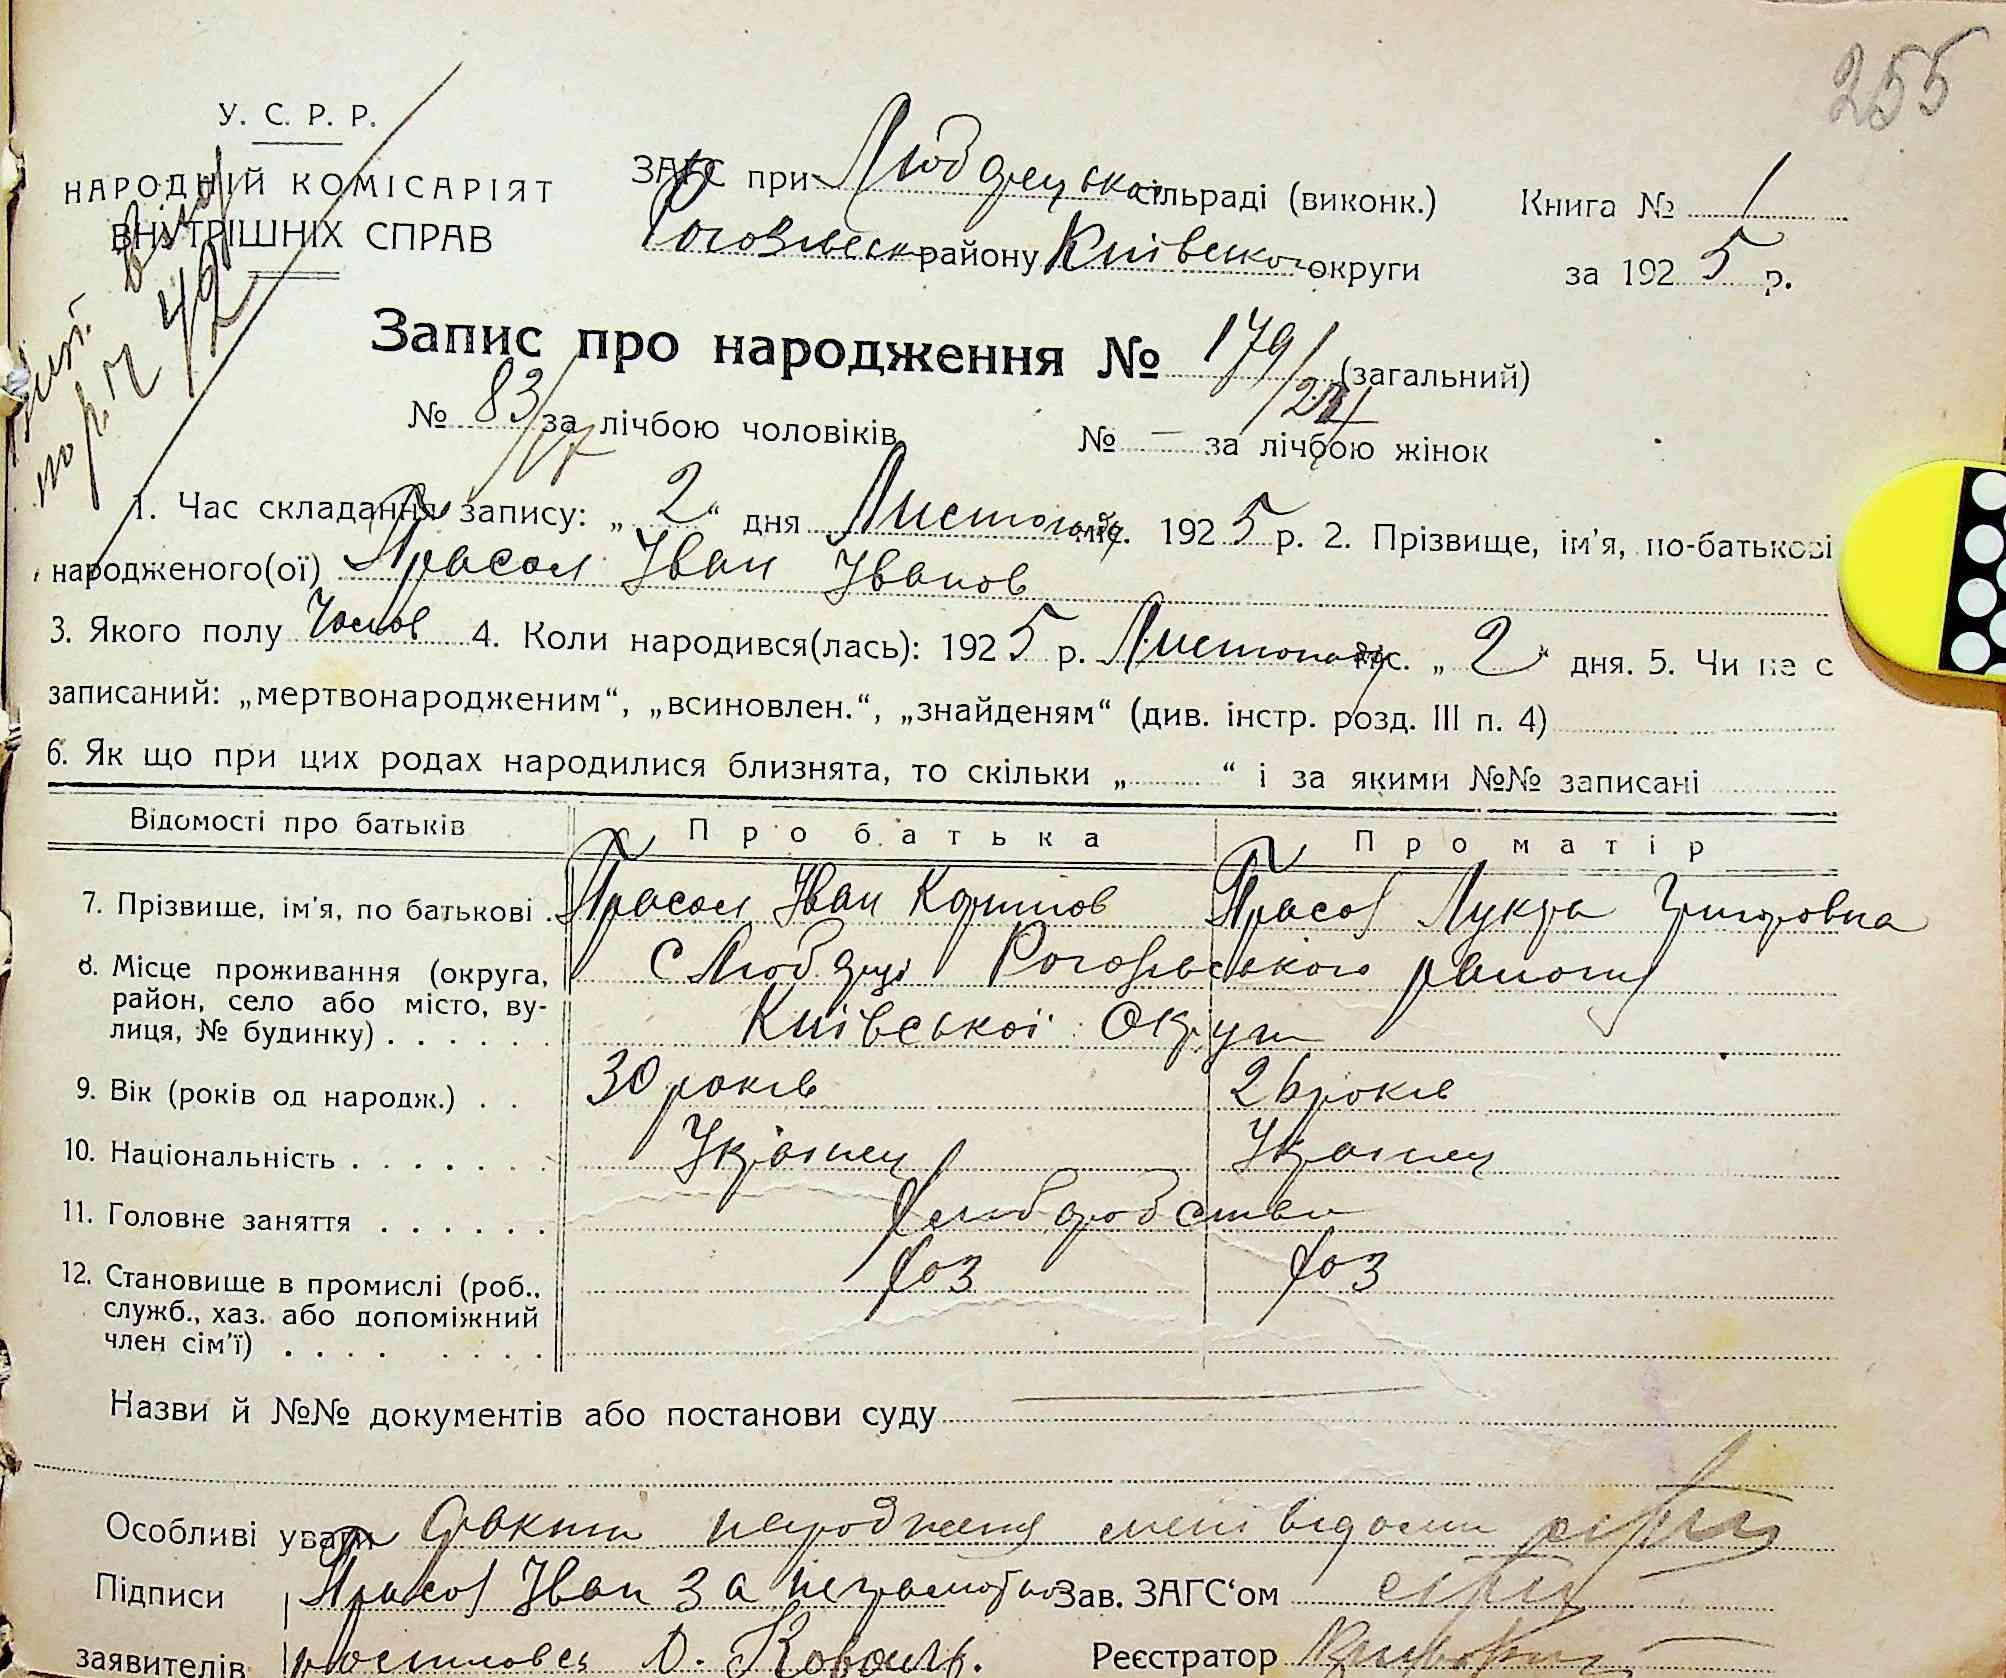 255
У. С. Р. Р.
НАРОДНІЙ КОМІСАРІЯТ
ВНУТРІШНІХ СПРАВ
ЗАГС при Любарецькій сільраді (виконк.) Книга № 1
району Київської округи за 1925 р.
Запис про народження № 179/ (загальний)
№ 83/17 за лічбою чоловіків № — за лічбою жінок
1. Час складання запису: „2“ дня Листопаду міс. 1925 р. 2. Прізвище, ім'я, по-батькові
народженого(ої) Прасол Іван Іванов
3. Якого полу Чолов 4. Коли народився(лась): 1925 р. Листопаду міс. „2“ дня. 5. Чи не є
записаний: „мертвонародженим“, „всиновлен.“, „знайденям“ (див. інстр. розд. III п. 4)
6. Як що при цих родах народилися близнята, то скільки „ “ і за якими №№ записані
Відомості про батьків Про батька Про матір
7. Прізвище, ім'я, по батькові Прасол Іван Прасол Лукра Григоровна
8. Місце проживання (округа, район, село або місто, вулиця, № будинку) с Любарці району
Київської Округи
9. Вік (років од народж.) 30 років 26 років
10. Національність Українец Українец
11. Головне заняття Хліборобство
12. Становище в промислі (роб., служб., хаз. або допоміжний член сім'ї) Хоз Хоз
Назви й №№ документів або постанови суду
Особливі уваги факти народження мені відоми
Підписи Прасол Іван За неграмотно Зав. ЗАГС‘ом
заявителів росписовсь О. Коваль. Реєстратор